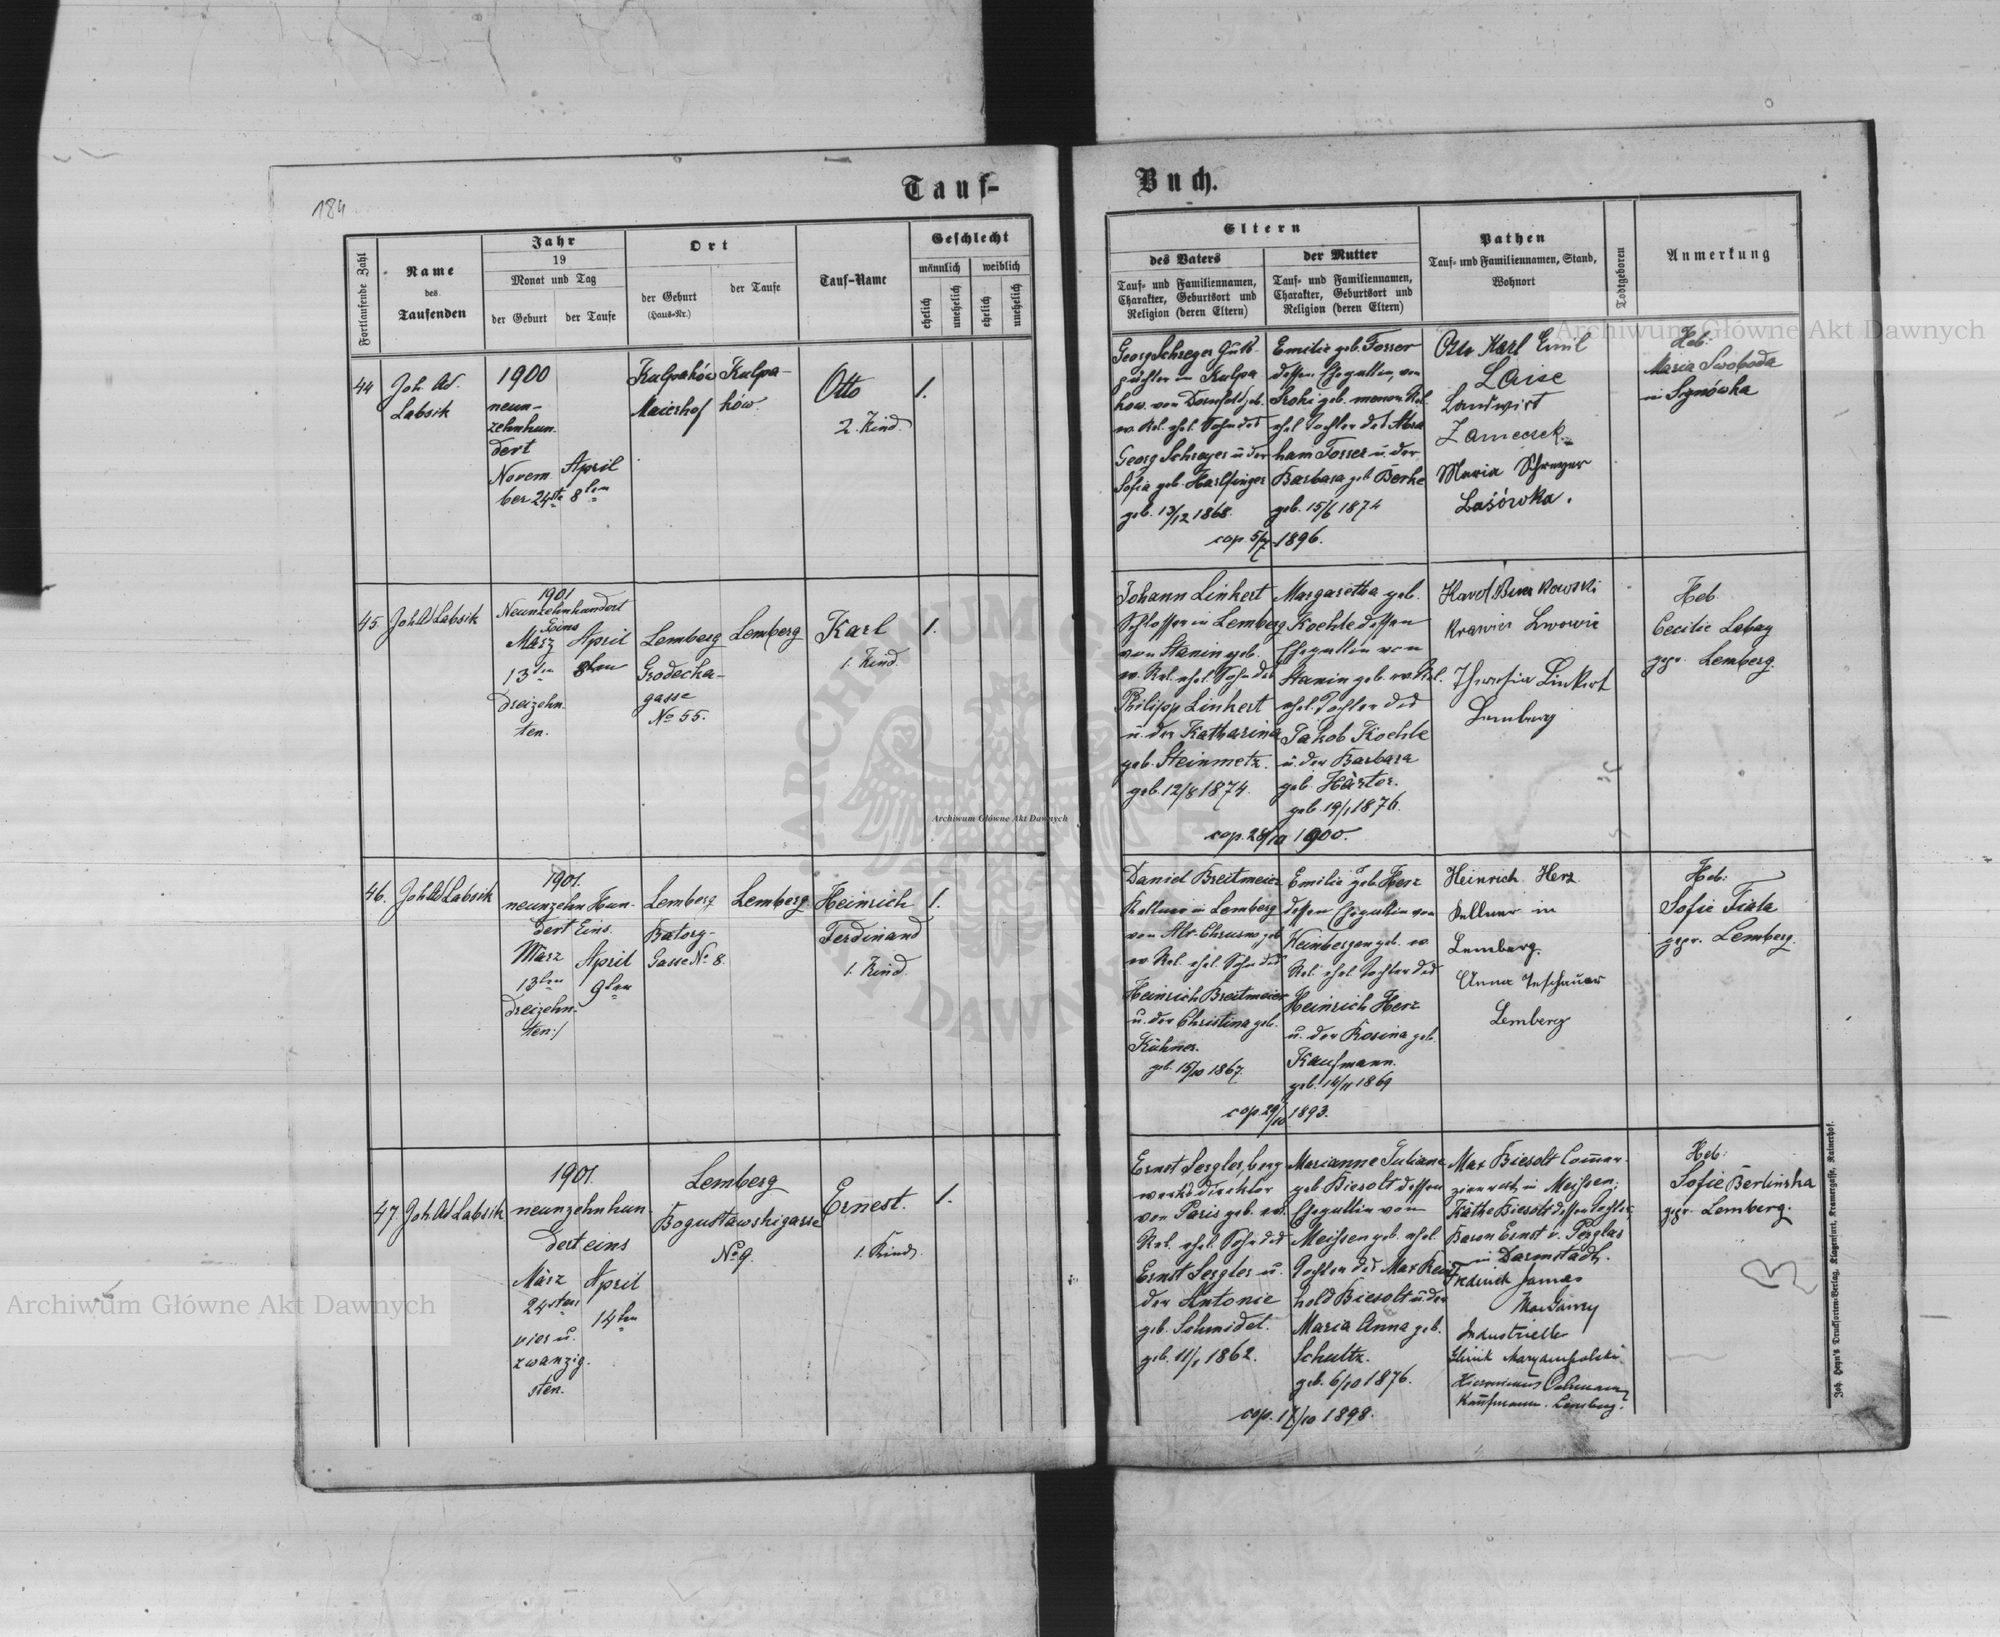 184
Tauf-
Buch.
Fortlaufende Zahl
Name
des
Taufenden
Jahr
19
Monat und Tag
der Geburt
der Taufe
Ort
der Geburt
(Haus-Nr.)
der Taufe
Tauf-Name
Geschlecht
männlich
weiblich
ehelich
unehelich
ehelich
unehelich
Eltern
des Vaters
Tauf- und Familiennamen,
Charakter, Geburtsort und
Religion (deren Eltern)
der Mutter
Tauf- und Familiennamen,
Charakter, Geburtsort und
Religion (deren Eltern)
Pathen
Tauf- und Familiennamen, Stand,
Wohnort
Todtgeboren
Anmerkung
44
Joh. Ad.
Labsik
1900
neun-
zehnhun-
dert
Novem
ber 24ten
April
8ten
Kulpahów
Maierhof
Kulpa-
hów
Otto
2. Kind.
1.
Georg Schreyer Guts-
pächter in Kulpa
how von Dornfeld geb.
ev. Rel. ehel. Sohn des
Georg Schreyer u der
Sofia geb. Harlfinger
geb. 13/12 1868.
Emilie geb. Forrer
dessen Ehegattin, von
geb. menon. Rel.
ehel. Tochter des Abra
ham Forrer u. der
Barbara geb.
geb. 15/6 1874
cop 5/7 1896.
Otto Karl Emil
Laise
Landwirt
Zameczek
Maria Schreyer
Lasówka.
Heb:
Maria Swoboda
in Signówka
45
Joh Ad Labsik
1901
Neunzehnhundert
Eins
März
13ten
dreizehn-
ten.
April
8ten
Lemberg
Grodecka-
gasse
No 55.
Lemberg
Karl
1. Kind.
1.
Johann Linkert
Schlosser in Lemberg
von Stanin geb.
ev. Rel. ehel. Sohn des
Philipp Linkert
u. der Katharina
geb. Steinmetz.
geb. 12/8 1874.
Margaretha geb.
Koehle dessen
Ehegattin von
Stanin geb. ev. Rel.
ehel. Tochter des
Jakob Koehle
u. der Barbara
geb. Härter.
geb. 19/1 1876.
cop. 28/10 1900.
Karol
Krawiec Lwowie
Theresia Linkert
Lemberg
Heb.
Cecilie Labay
gepr. Lemberg.
46.
Joh Ad Labsik
1901.
neunzehn Hun-
dert Eins.
März
13ten
dreizehn-
ten./
April
9ten
Lemberg
Batory-
Gasse No 8.
Lemberg
Heinrich
Ferdinand
1. Kind.
1.
Daniel Breitmeier
Kellner in Lemberg
von Alt-Chrusno geb.
ev. Rel. ehel. Sohn des
Heinrich Breitmeier
u. der Christina geb.
Kühner.
geb. 15/10 1867.
Emilie geb. Herz
dessen Ehegattin von
Weinbergen geb. ev.
Rel. ehel. Tochter des
Heinrich Herz
u. der Rosina geb.
Kaufmann.
geb. 14/11 1869
cop 29/10 1893.
Heinrich Herz
Kellner in
Lemberg.
Anna
Lemberg
Heb:
Sofie Fiala
gepr. Lemberg.
47.
Joh. Ad Labsik
1901.
neunzehnhun-
dert eins
März
24sten
vier u.
zwanzig-
sten.
April
14ten
Lemberg
Bogusławskigasse
No 9.
Ernest.
1. Kind.
1.
Ernst berg
werksdirektor
von Paris geb. ev.
Rel. ehel. Sohn des
Ernst u.
der Antonie
geb. Schmidet.
geb. 11/1 1862.
Marianne Juliane
geb. Biesolt dessen
Ehegattin von
Meissen geb. ehel.
Tochter des Max Rein
hold Biesolt u. der
Maria Anna geb.
Schultz.
geb. 6/10 1876.
cop. 1898.
Max Biesolt Commer-
zienrat, in Meissen;
Käthe Biesolt dessen Tochter,
Baron Ernst v.
in Darmstadt.
Industrielle
Kaufmann. Lemberg.
Heb:
Sofie Berlinska
gepr. Lemberg.
Joh. Heyn's Drucksorten-Verlag, Klagenfurt, Kramergasse, Rainerhof.
Archiwum Główne Akt Dawnych
Archiwum Główne Akt Dawnych
Archiwum Główne Akt Dawnych